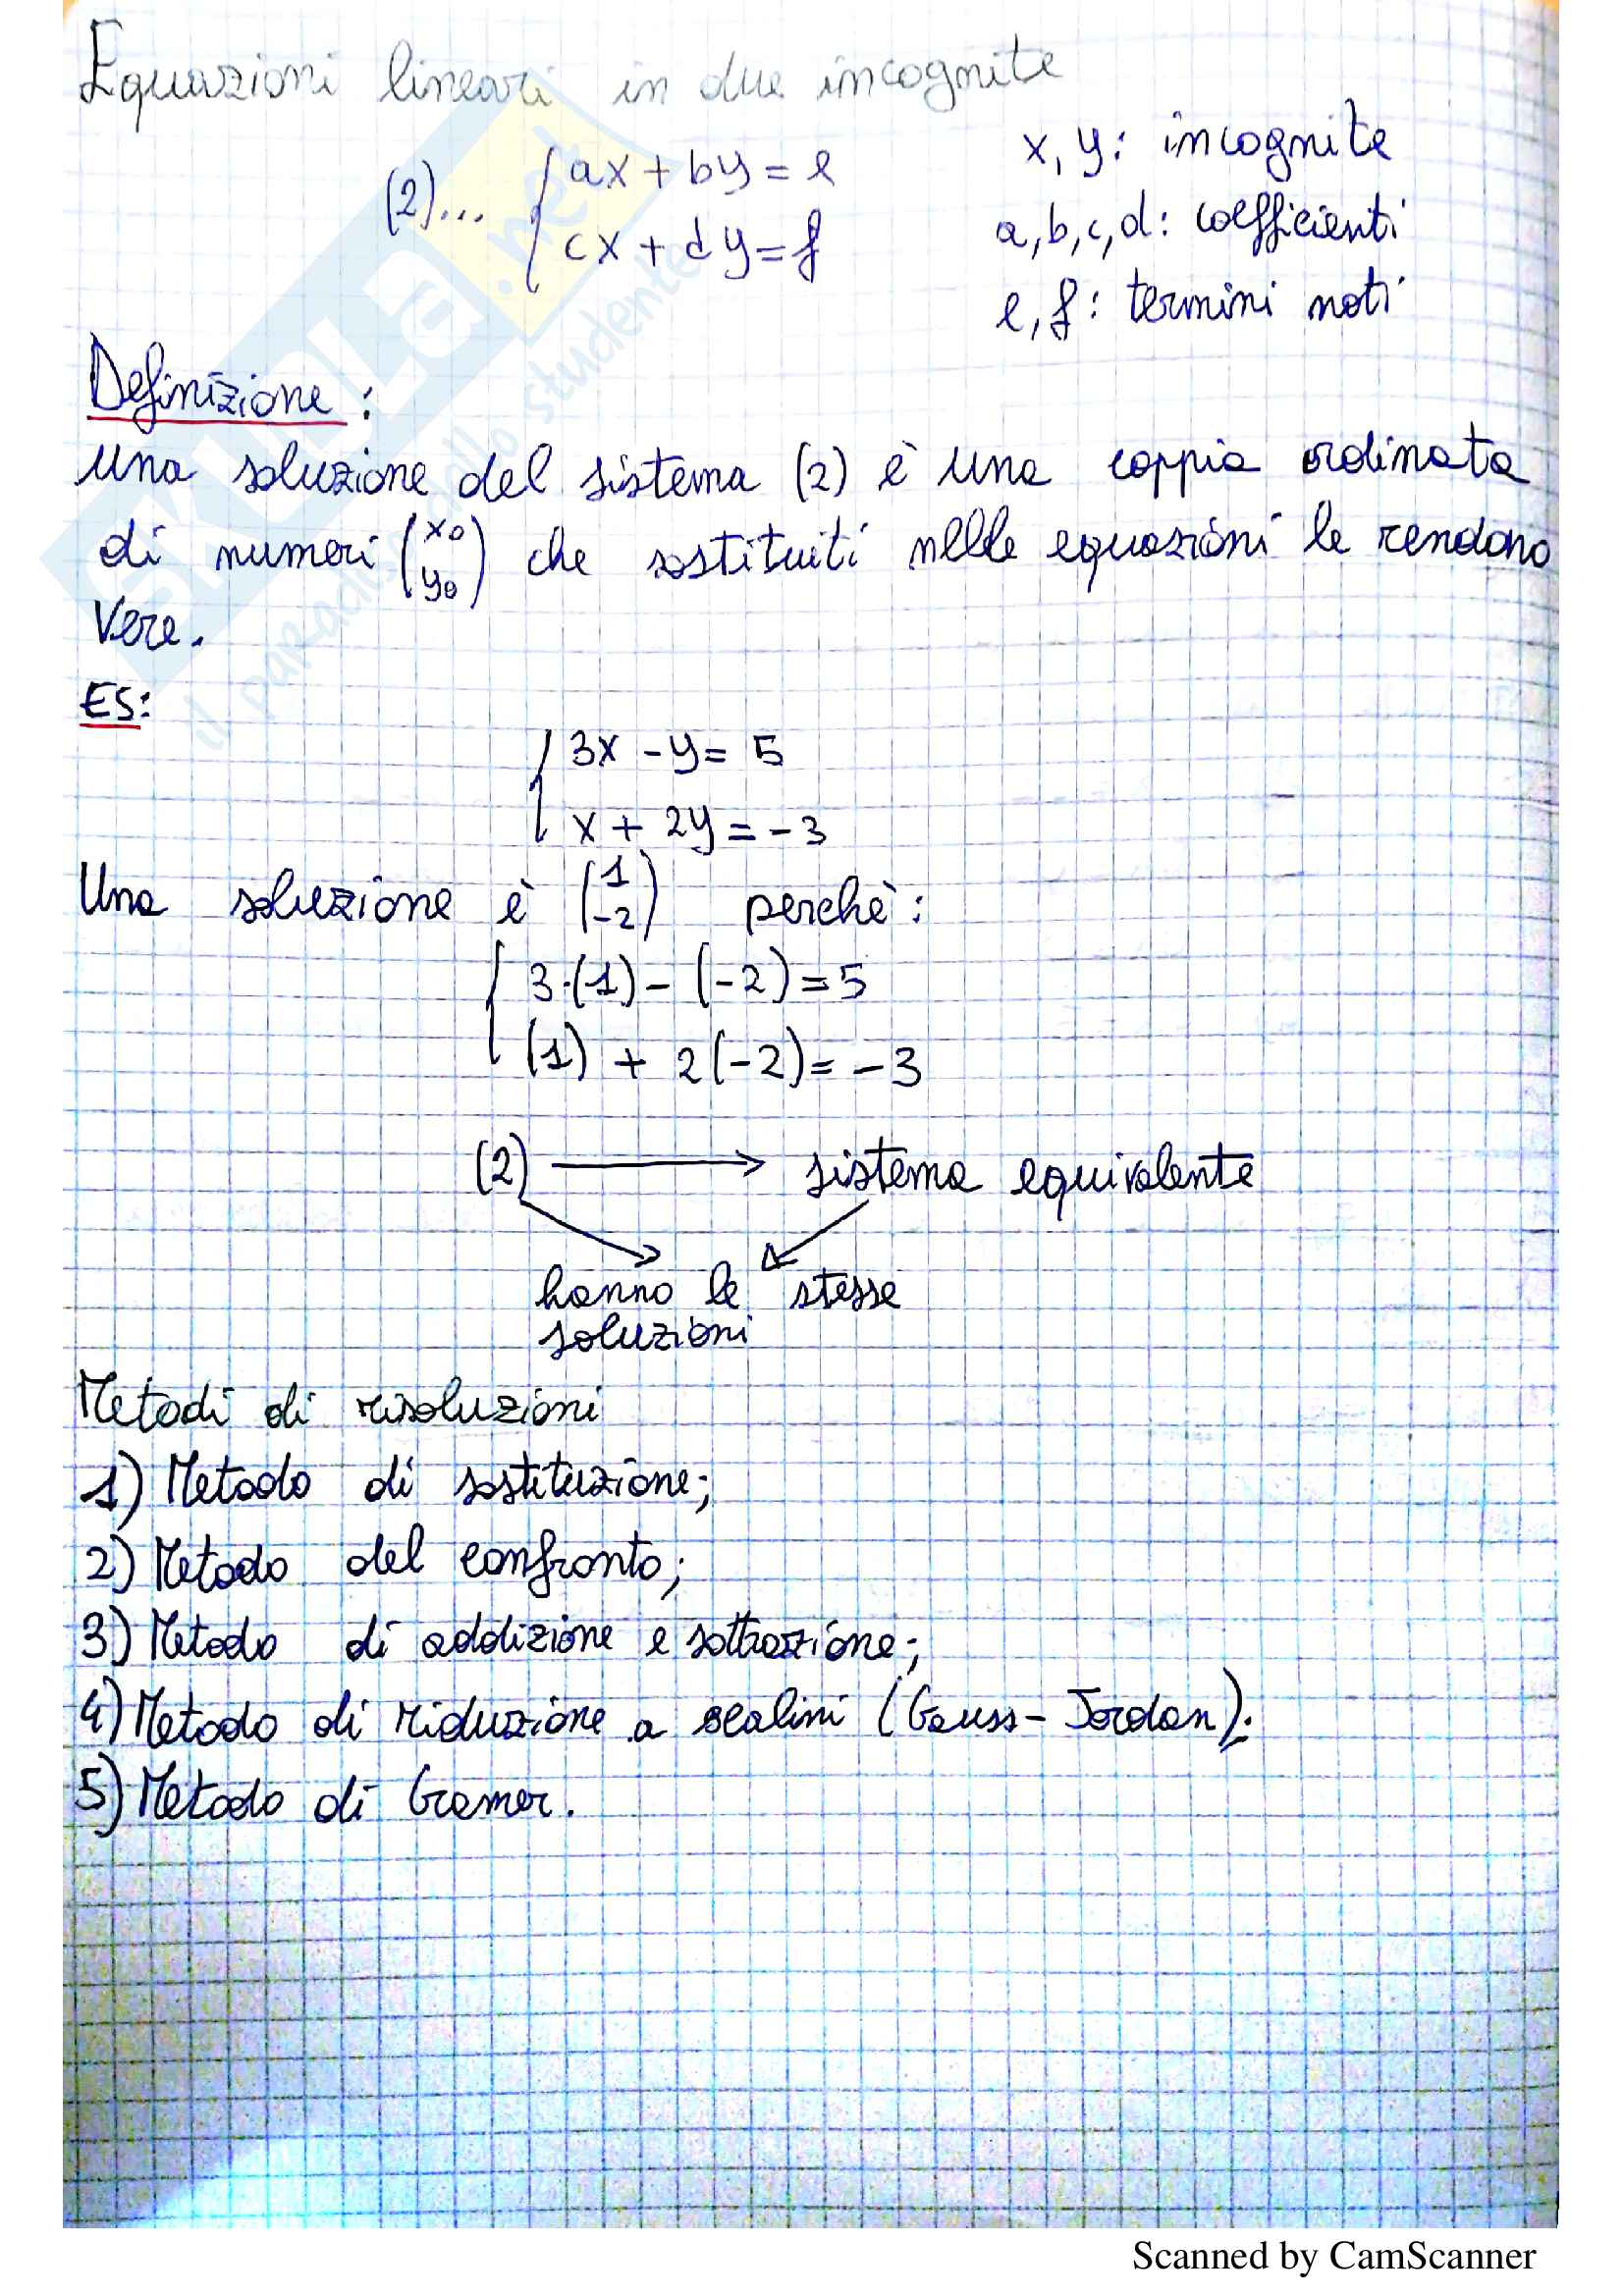 Equazioni lineari in due incognite
(2)... { ax + by = e
cx + dy = f
x, y: incognite
a, b, c, d: coefficienti
e, f: termini noti
Definizione:
una soluzione del sistema (2) è una coppia ordinata
di numeri (x0 y0) che sostituiti nelle equazioni le rendono
vere.
ES:
{ 3x - y = 5
x + 2y = -3
Una soluzione è (1 -2) perchè:
{ 3·(1) - (-2) = 5
(1) + 2(-2) = -3
(2) → sistema equivalente
hanno le stesse
soluzioni
Metodi di risoluzioni
1) Metodo di sostituzione;
2) Metodo del confronto;
3) Metodo di addizione e sottrazione;
4) Metodo di riduzione a scalini (Gauss-Jordan);
5) Metodo di Cramer.
SKUOLA.net
il paradiso dello studente
Scanned by CamScanner